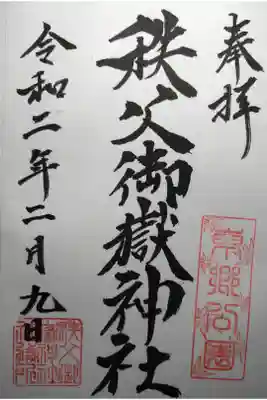 奉拝
秩父御嶽神社
東郷公園
令和二年二月九日